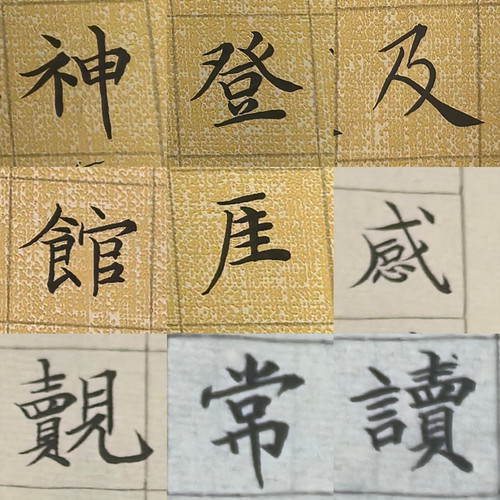 神登及
館厓感
覿常讀